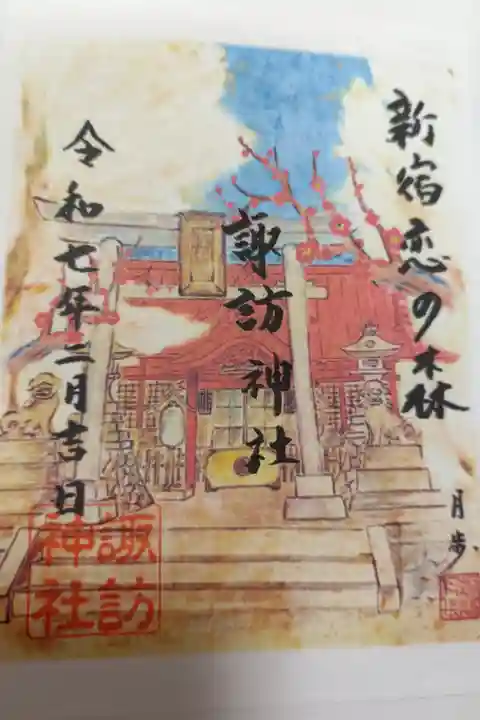 新宿恋の森
諏訪神社
令和七年二月吉日
諏訪
神社
月歩